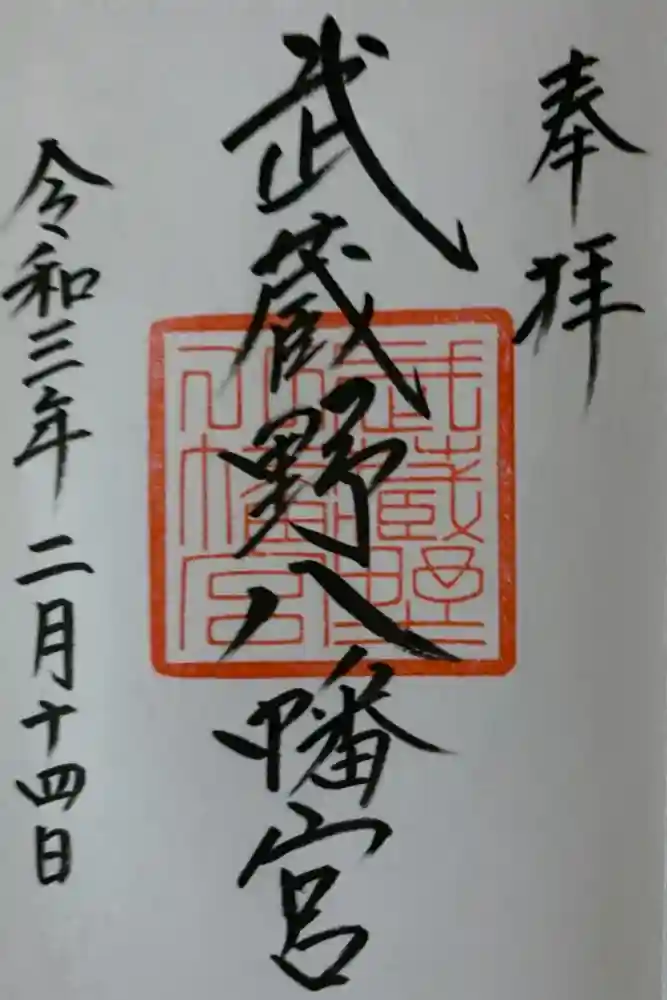 奉拝
武蔵野八幡宮
令和三年二月十四日
武蔵野
八幡宮